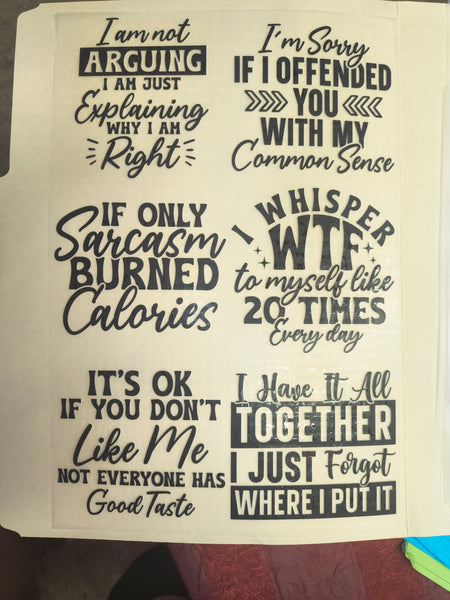 I am not
ARGUING
I AM JUST
Explaining
WHY I AM
Right
I'm Sorry
IF I OFFENDED
YOU
WITH MY
Common Sense
IF ONLY
Sarcasm
BURNED
Calories
I WHISPER
WTF
to myself like
20 TIMES
Every day
IT'S OK
IF YOU DON'T
Like Me
NOT EVERYONE HAS
Good Taste
I Have It All
TOGETHER
I JUST Forgot
WHERE I PUT IT